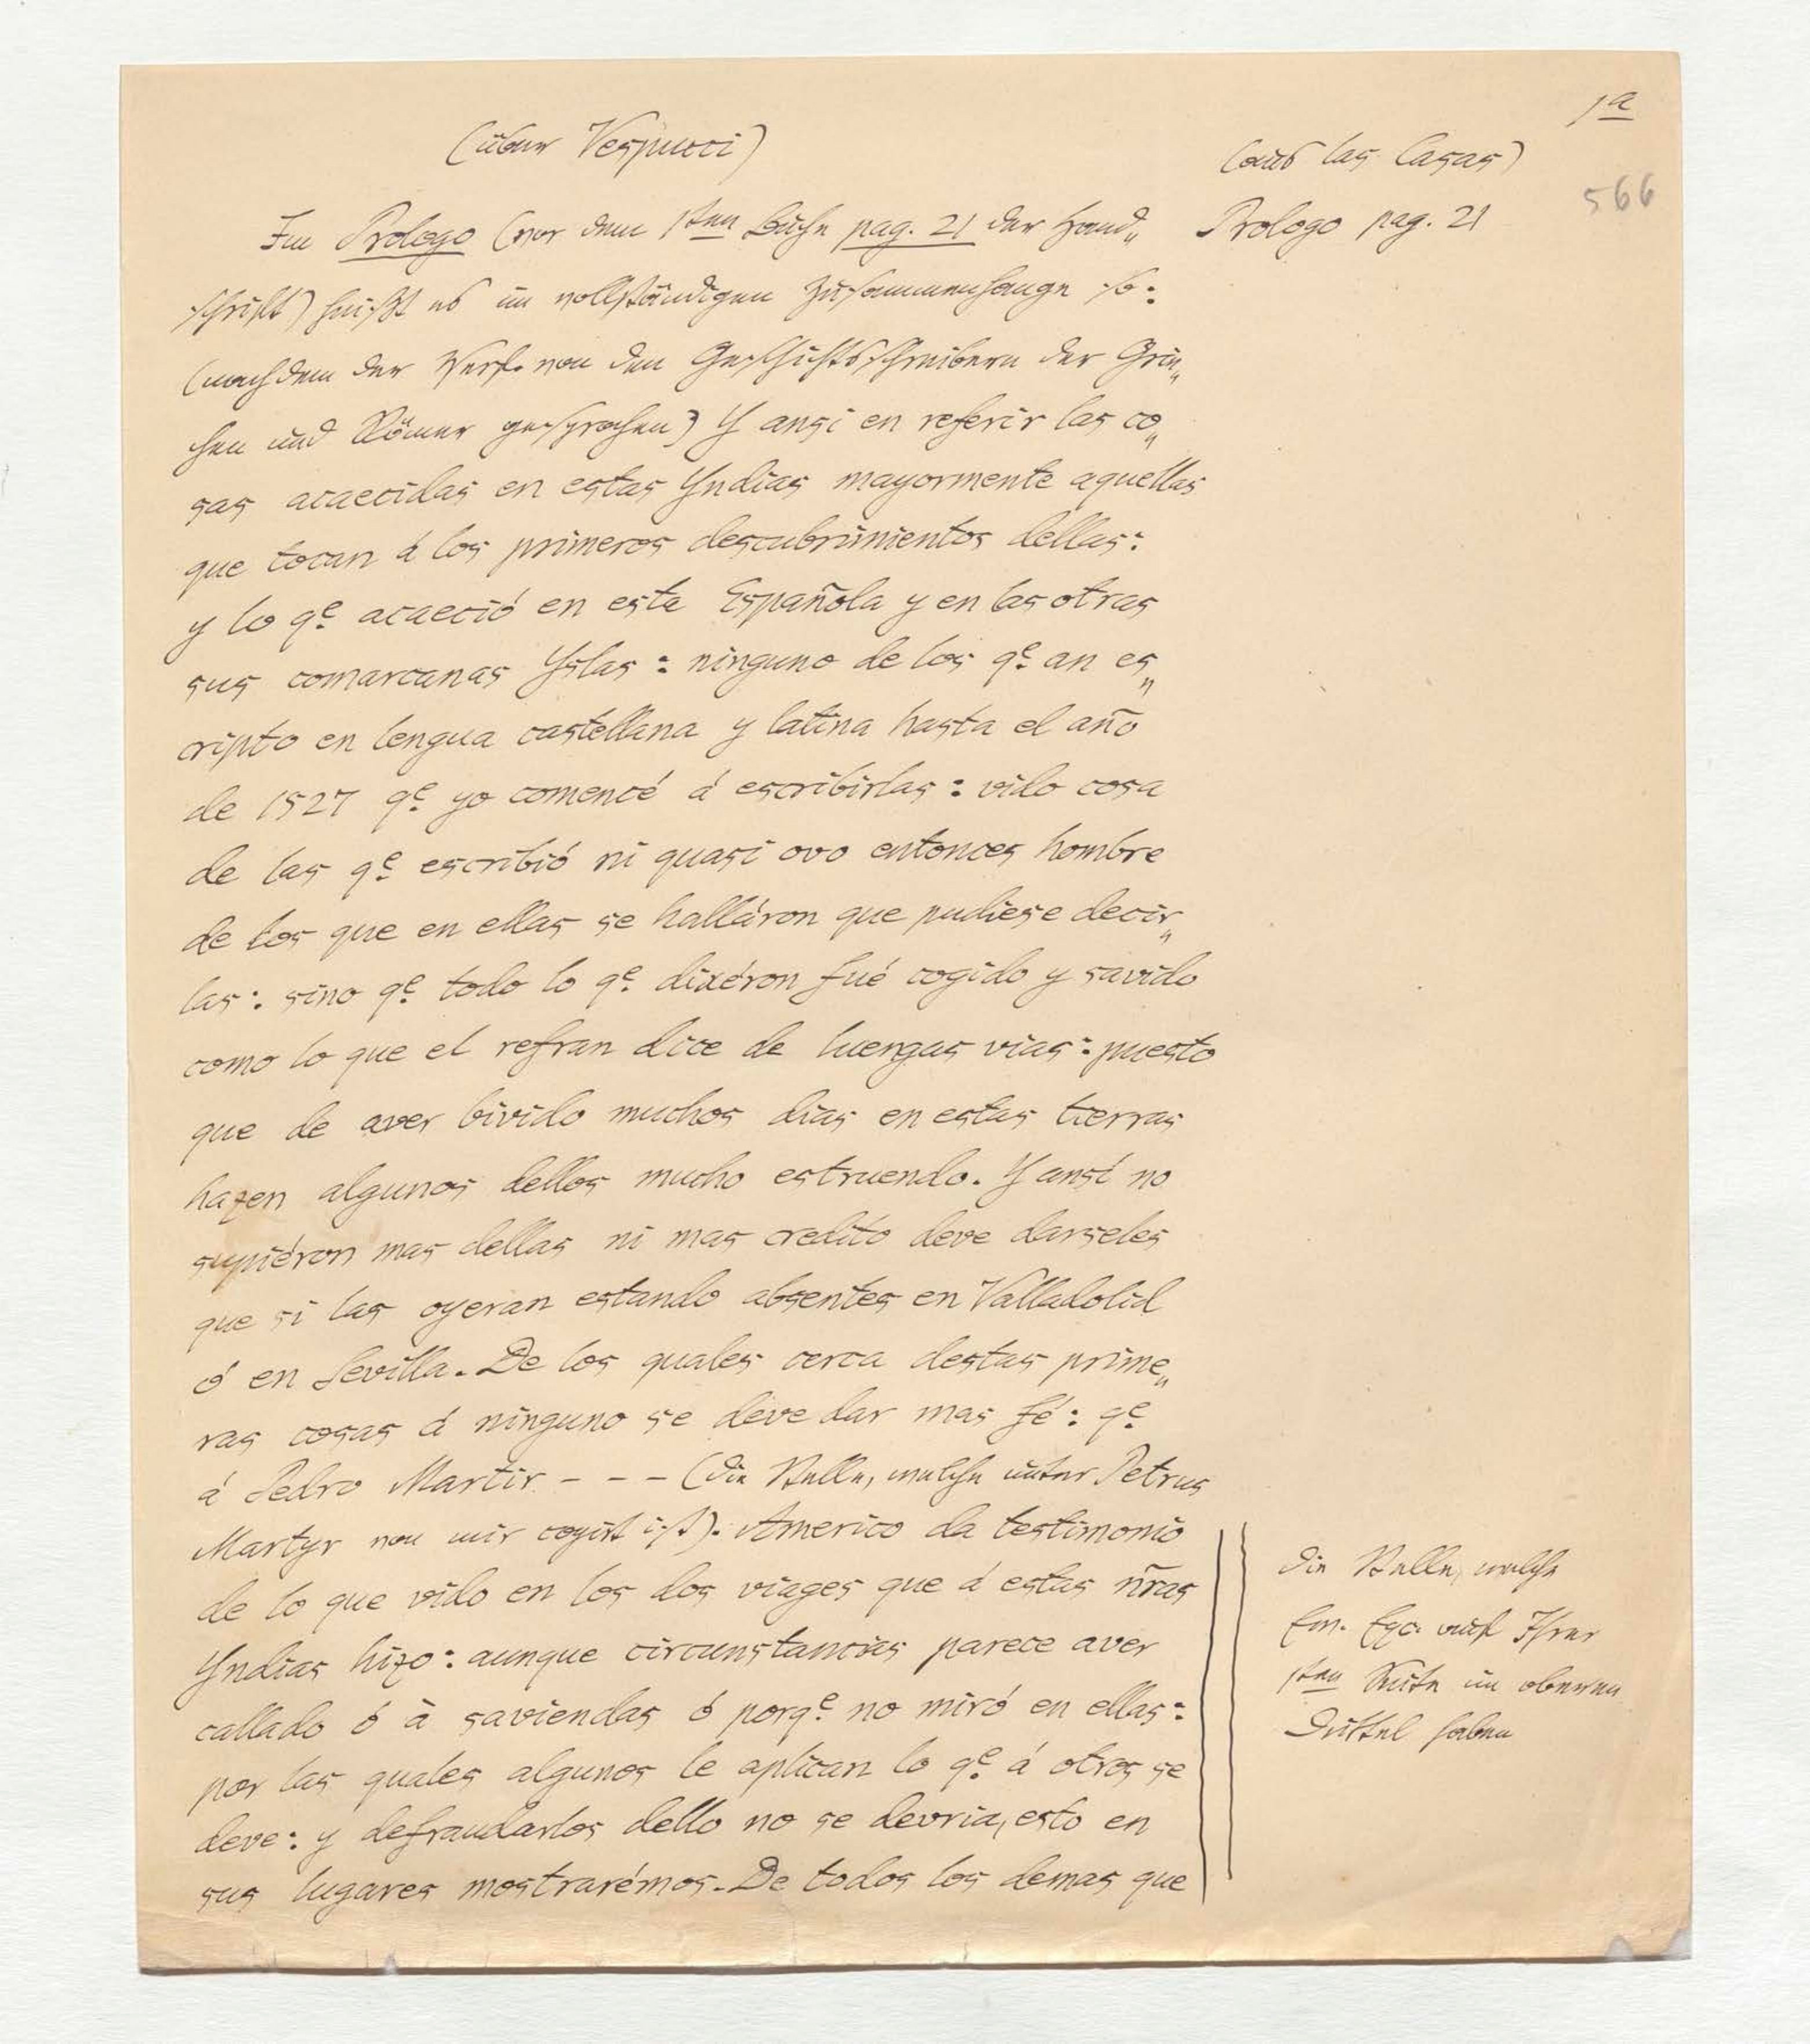 1a
(über Vespucci)
(aus las Casas)
566
Im Prologo (vor dem 1sten Buche pag. 21 der Hand„
Prologo pag. 21
schrift) heißt es im vollständigen Zusammenhange so:
(nachdem der Verf. von den Geschichtsschreibern der Grie„
chen und Römer gesprochen) Y ansi en referir las co„
sas acaecidas en estas Yndias mayormente aquellas
que tocan á los primeros descubrimientos dellas:
y lo qe. acaeció en esta Española y en las otras
sus comarcanas Yslas: ninguno de los qe. an es„
cripto en lengua castellana y latina hasta el año
de 1527 qe. yo comencé á escribirlas: vido cosa
de las qe. escribió ni quasi ovo entonces hombre
de los que en ellas se halláron que pudiese decir„
las: sino qe. todo lo qe. dixéron fué cogido y savido
como lo que el refran dice de luengas vias: puesto
que de aver bivido muchos dias en estas tierras
hazen algunos dellos mucho estruendo. Y ansí no
supiéron mas dellas ni mas credito deve darseles
que si las oyeran estando absentes en Valladolid
ó en Sevilla. De los quales cerca destas prime„
ras cosas á ninguno se deve dar mas fé: qe.
á Pedro Martir - - - (die Stelle, welche unter Petrus
Martyr von mir copirt ist). Americo da testimonio
de lo que vido en los dos viages que á estas ñras
Yndias hizo: aunque circunstancias parece aver
callado ó à saviendas ó porqe. no miró en ellas:
por las quales algunos le aplican lo qe. á otros se
deve: y defraudarlos dello no se devria, esto en
sus lugares mostrarémos. De todos los demas que
die Stelle, welche
Ew. Exc. auf Ihrer
1sten Seite im oberen
Drittel haben